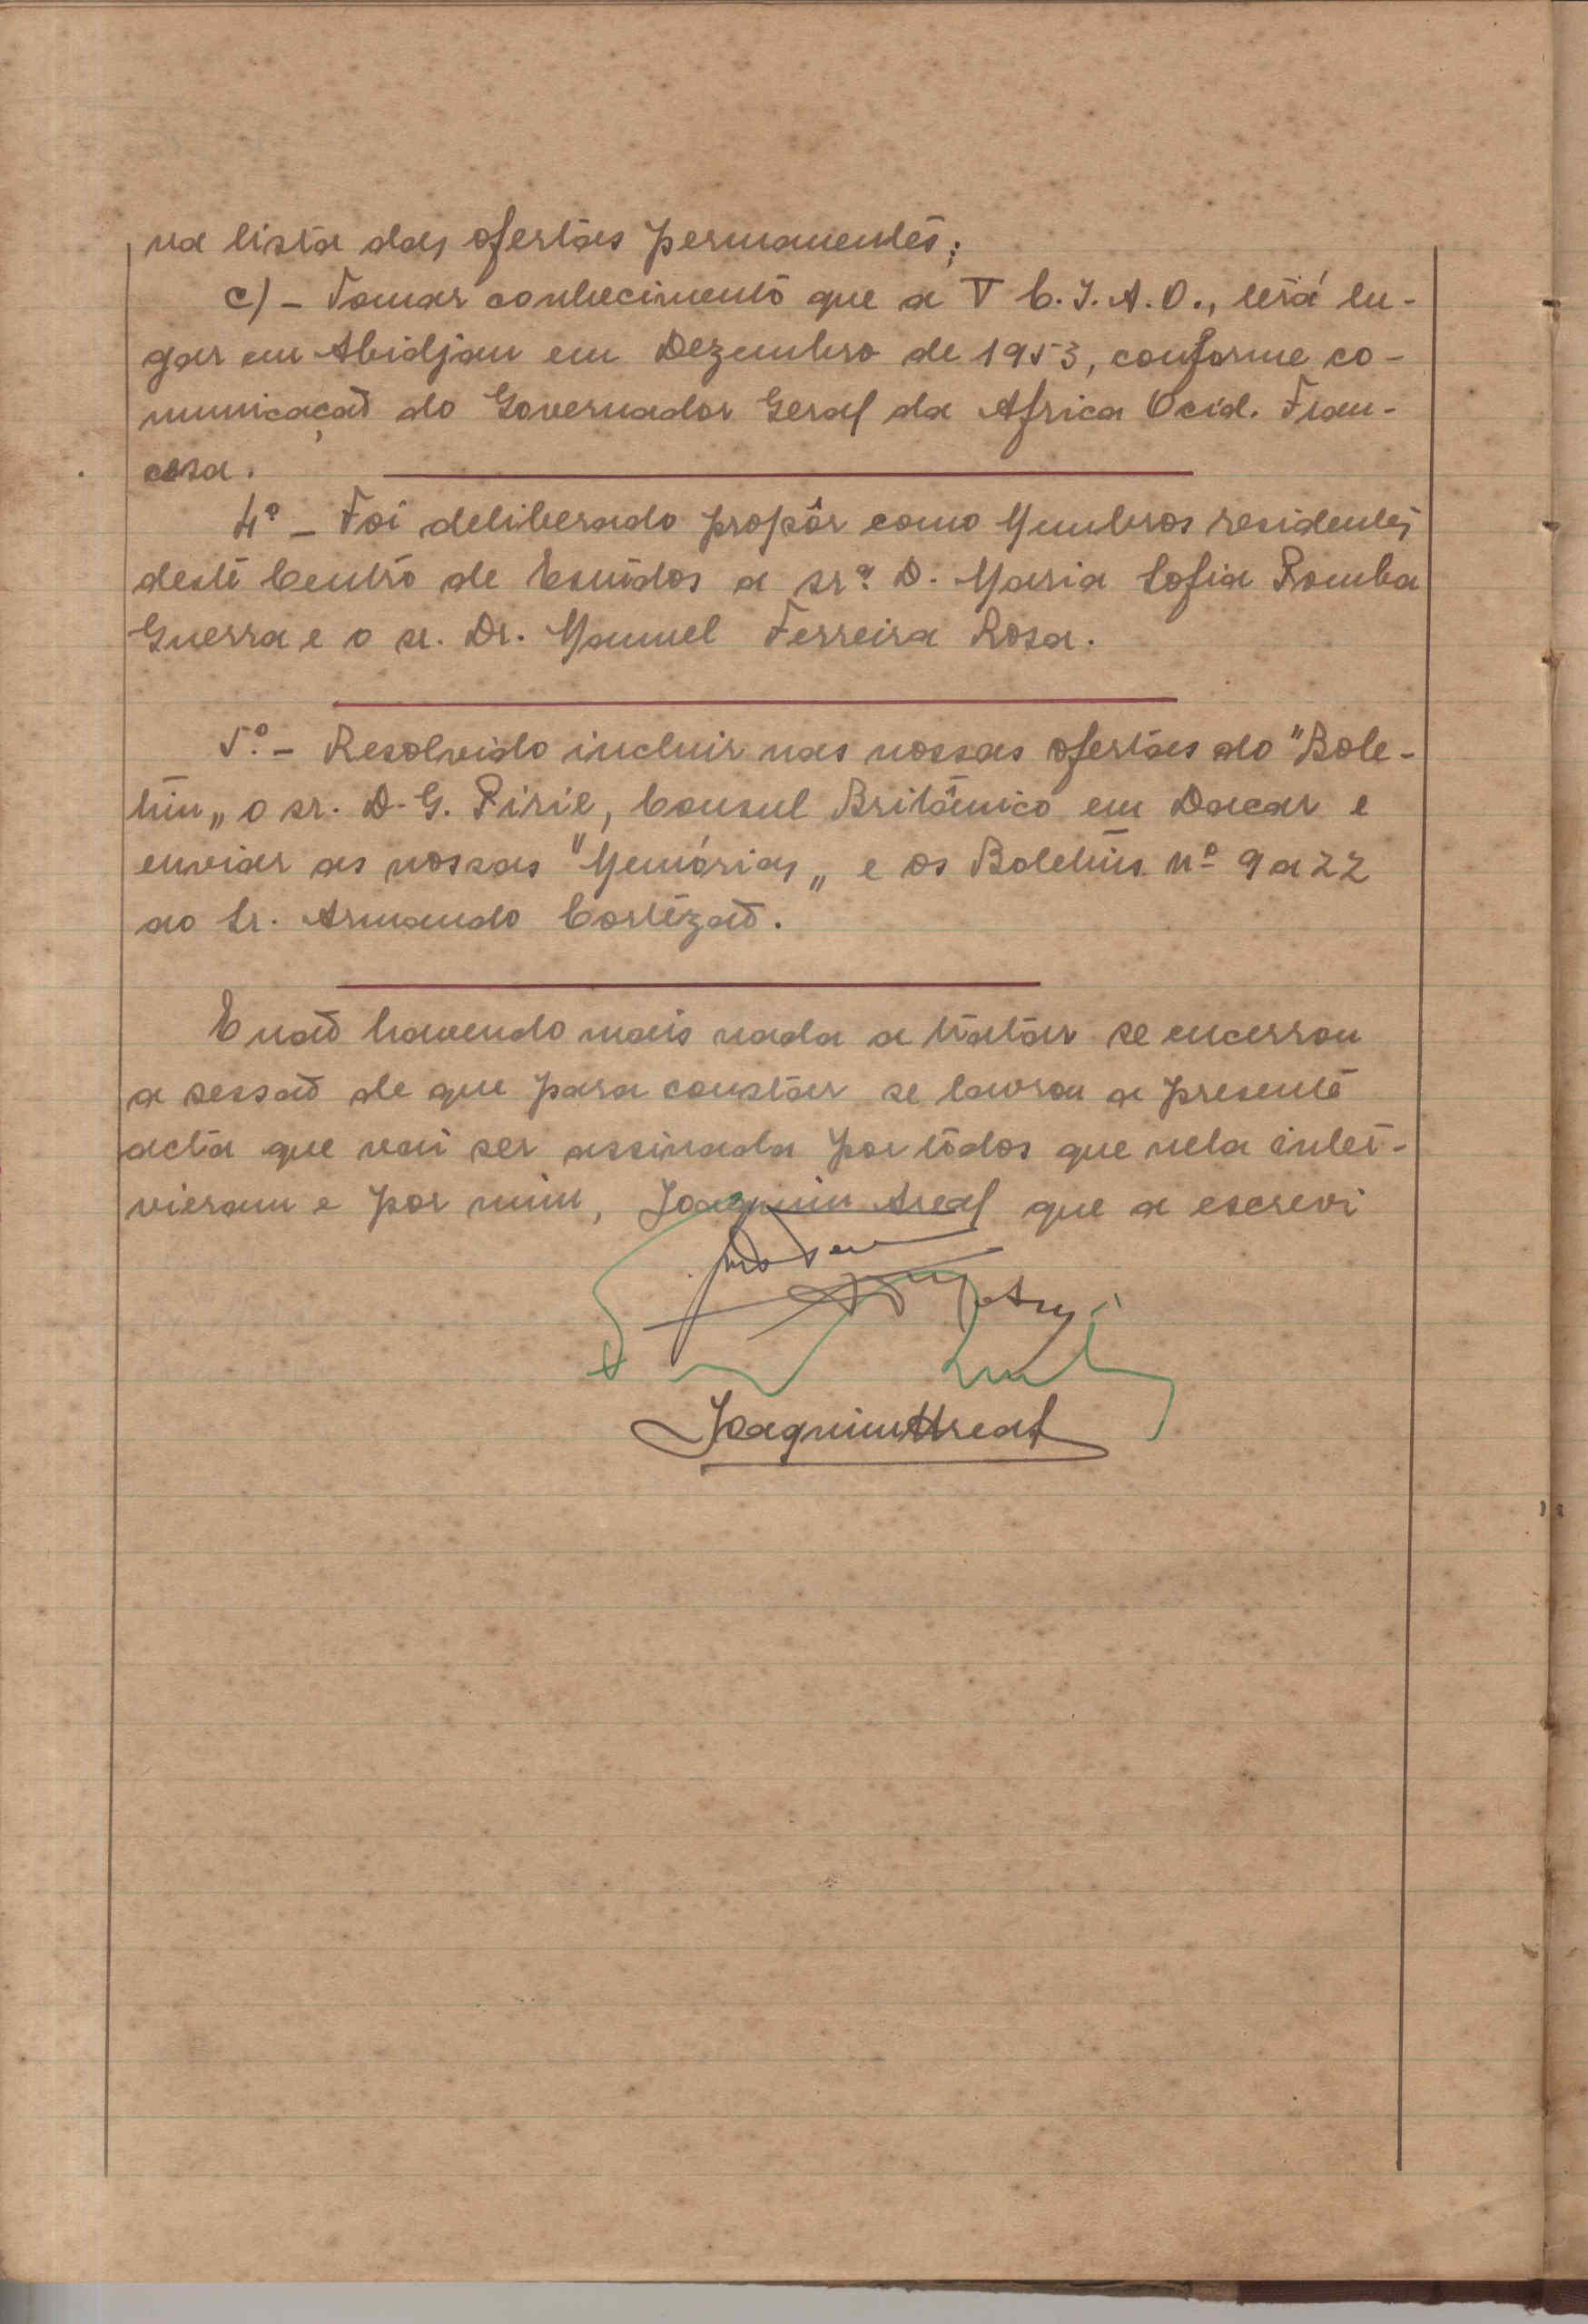 na lista das ofertas permanentes;
c) - Tomar conhecimento que a V C.I.A.O., terá lu-
gar em Abidjan em Dezembro de 1953, conforme co-
municação do Governador Geral da Africa Ocid. Fran-
cesa.
4º - Foi deliberado propôr como Membros residentes
deste Centro de Estudos a srª D. Maria Sofia Pomba
Guerra e o sr. Dr. Manuel Ferreira Rosa.
5º. - Resolvido incluir nas nossas ofertas do "Bole-
tim„ o sr. D. G. Pirie, Consul Britânico em Dacar e
enviar as nossas "Memórias„ e os Boletins nº 9 a 22
ao Sr. Armando Cortêzão.
E não havendo mais nada a tratar se encerrou
a sessão de que para constar se lavrou a presente
acta que vai ser assinada por tôdos que nela inter-
vieram e por mim, Joaquim Areal que a escrevi
Joaquim Areal